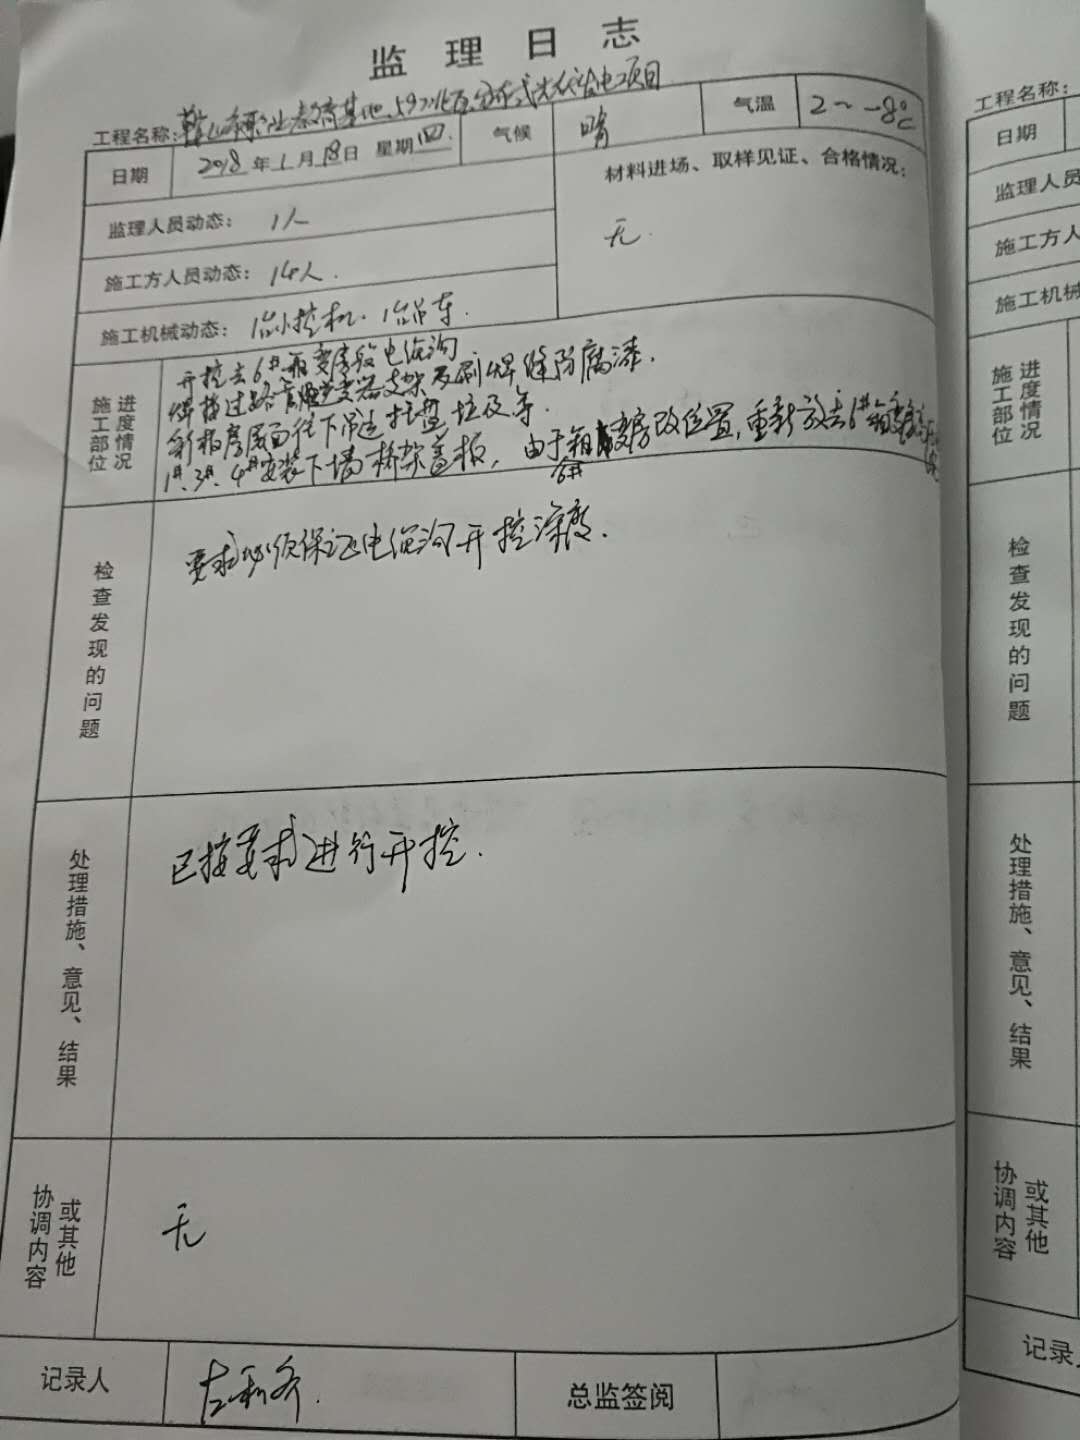 监理日志
工程名称：鞍山市职业教育基地5.9兆瓦分布式光伏发电项目
日期 2018年1月18日 星期四. 气候 晴 气温 2～-8℃
监理人员动态： 1人
材料进场、取样见证、合格情况：
无.
施工方人员动态： 14人.
施工机械动态： 1台小挖机. 1台吊车.
施工部位 进度情况
开挖去6#箱变房段电缆沟
焊接过路 变器支架及刷焊缝防腐漆.
屋面往下吊运托盘垃圾等.
1#、3#、4#安装下墙桥架盖板，由于箱变房改位置，重新放去6#箱变房
6#
检查发现的问题
要求必须保证电缆沟开挖深度.
处理措施、意见、结果
已按要求进行开挖.
协调内容 或其他
无
记录人
总监签阅
工程名称：
日期
监理人员
施工方人
施工机械
施工部位 进度情况
检查发现的问题
处理措施、意见、结果
协调内容 或其他
记录